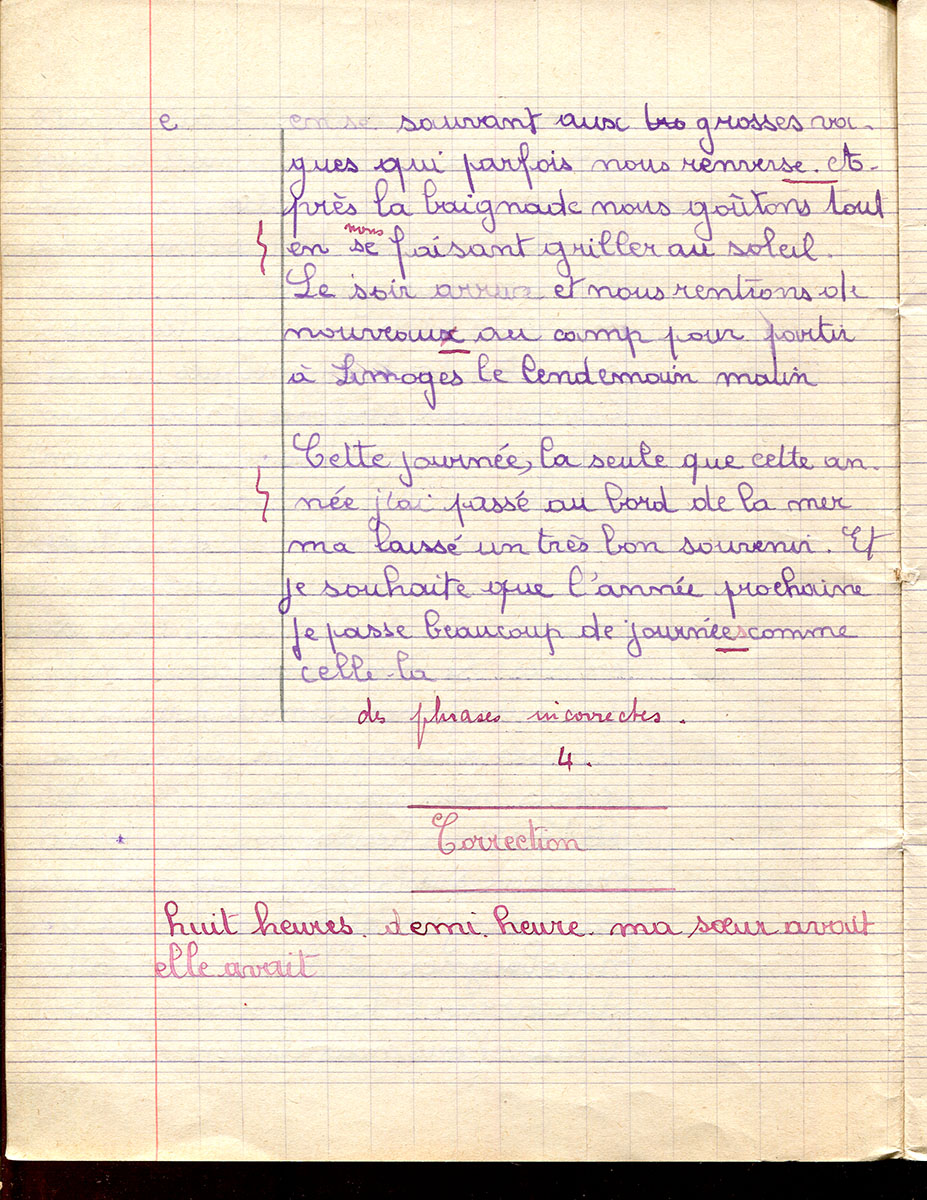 e en se sauvant aux bro grosses va-
gues qui parfois nous renverse. A-
près la baignade nous goûtons tout
nous
en se faisant griller au soleil.
Le soir arrive et nous rentrons de
nouveaux au camp pour partir
à Limoges le lendemain matin
Cette journée, la seule que cette an-
née j'ai passé au bord de la mer
ma laissé un très bon souvenir. Et
je souhaite que l'année prochaine
je passe beaucoup de journées comme
celle-la
des phrases incorrectes.
4.
Correction
huit heures. demi. heure. ma sœur avait
elle avait